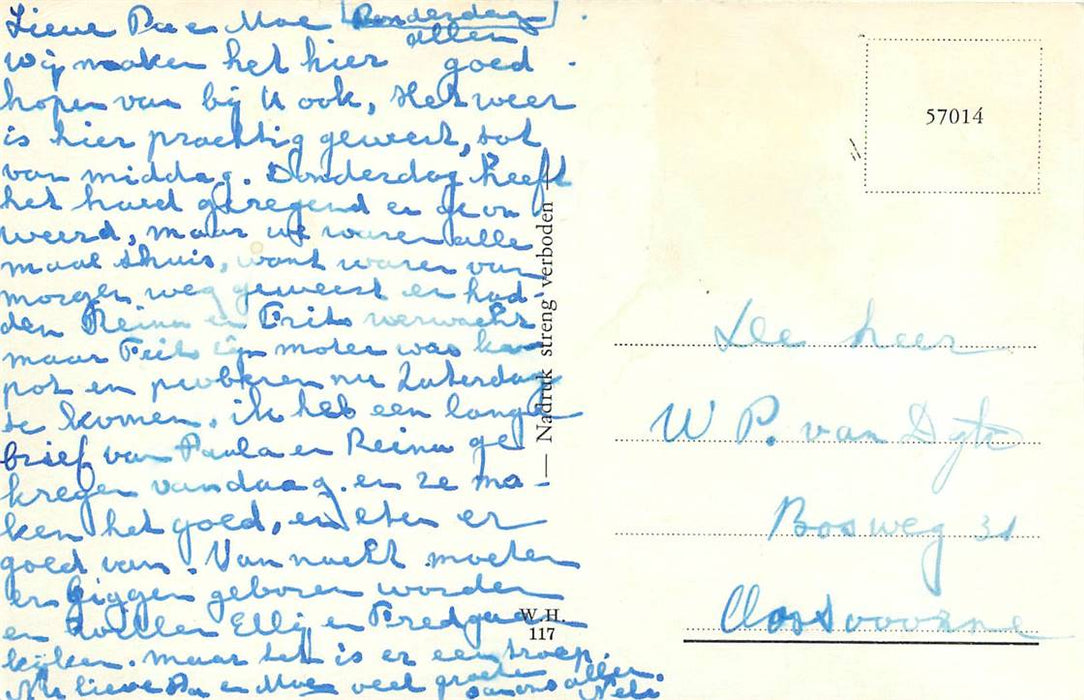 Lieve Pa en Moe Donderdag.
allen
Wij maken het hier goed.
hopen van bij U ook, Het weer
is hier prachtig geweest, tot
van middag. Donderdag heeft
het hard geregend en geon
weerd, maar we waren alle
maal thuis, want waren van
morgen weg geweest en had-
den Reinu en Frits verwacht
maar Frits zijn moter was ka
pot en proberen nu Zaterdag
te komen, ik heb een lange
brief van Paula en Reinu ge
kregen vandaag. en ze ma-
ken het goed, en eten er
goed van. Van nacht moeten
er biggen geboren worden
en willen Elly en Fred gaan
kijken. maar het is er een troep.
Nu lieve Pa en Moe veel groeten
van ons allen. Nels.
— Nadruk streng verboden —
W.H.
117
57014
De heer
W P. van Dyk
Bosweg 31
Oostvoorne